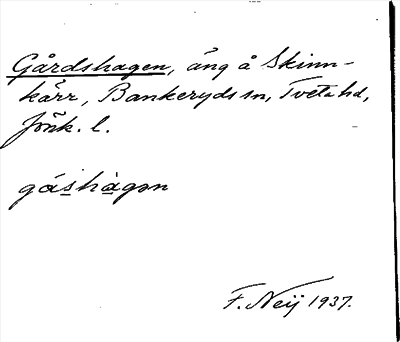 Gårdshagen, äng å Skinn-
kärr, Bankeryds sn, Tveta hd,
Jönk. l.
gås̲hàgən
F. Neij 1937.